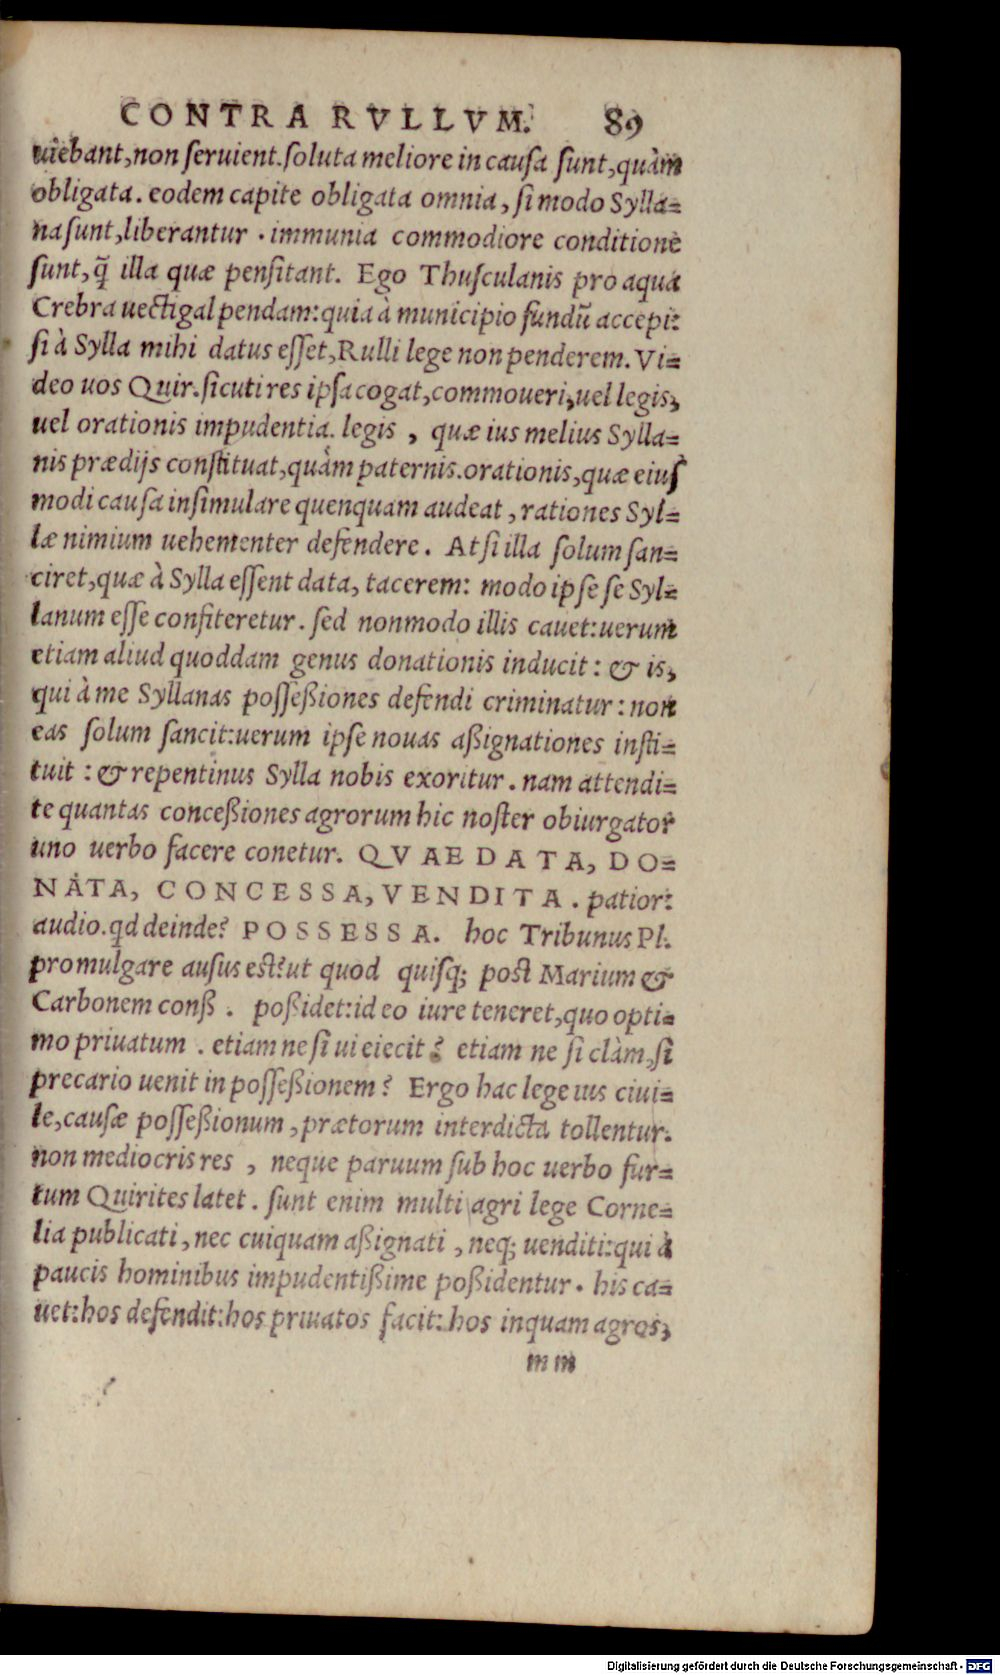 CONTRA RVLLVM. 89
uiebant, non ſeruient. ſoluta meliore in cauſa ſunt, quàm
obligata. eodem capite obligata omnia, ſi modo Sylla=
na ſunt, liberantur. immunia commodiore conditione
ſunt, q̃ illa quæ penſitant. Ego Thuſculanis pro aqua
Crebra uectigal pendam: quia à municipio fundũ accepi:
ſi à Sylla mihi datus eſſet, Rulli lege non penderem. Vi=
deo uos Quir. ſicuti res ipſa cogat, commoueri, uel legis,
uel orationis impudentia. legis, quæ ius melius Sylla=
nis prædijs conſtituat, quàm paternis. orationis, quæ eiuſ
modi cauſa inſimulare quenquam audeat, rationes Syl=
læ nimium uehementer defendere. At ſi illa ſolum ſan=
ciret, quæ à Sylla eſſent data, tacerem: modo ipſe ſe Syl=
lanum eſſe confiteretur. ſed nonmodo illis cauet: uerum
etiam aliud quoddam genus donationis inducit: & is,
qui à me Syllanas poſſeßiones defendi criminatur: non
eas ſolum ſancit: uerum ipſe nouas aßignationes inſti=
tuit: & repentinus Sylla nobis exoritur. nam attendi=
te quantas conceßiones agrorum hic noſter obiurgator
uno uerbo facere conetur. QVAE DATA, DO=
NATA, CONCESSA, VENDITA. patior:
audio. qd deinde? POSSESSA. hoc Tribunus Pl.
promulgare auſus eſt? ut quod quiſq; poſt Marium &
Carbonem conß. poßidet: id eo iure teneret, quo opti=
mo priuatum. etiam ne ſi ui eiecit? etiam ne ſi clàm, ſi
precario uenit in poſſeßionem? Ergo hac lege ius ciui=
le, cauſæ poſſeßionum, prætorum interdicta tollentur.
non mediocris res, neque paruum ſub hoc uerbo fur=
tum Quirites latet. ſunt enim multi agri lege Corne=
lia publicati, nec cuiquam aßignati, neq; uenditi: qui à
paucis hominibus impudentißime poßidentur. his ca=
uet: hos defendit: hos priuatos facit: hos inquam agros,
m m
Digitalisierung gefördert durch die Deutsche Forschungsgemeinschaft - DFG